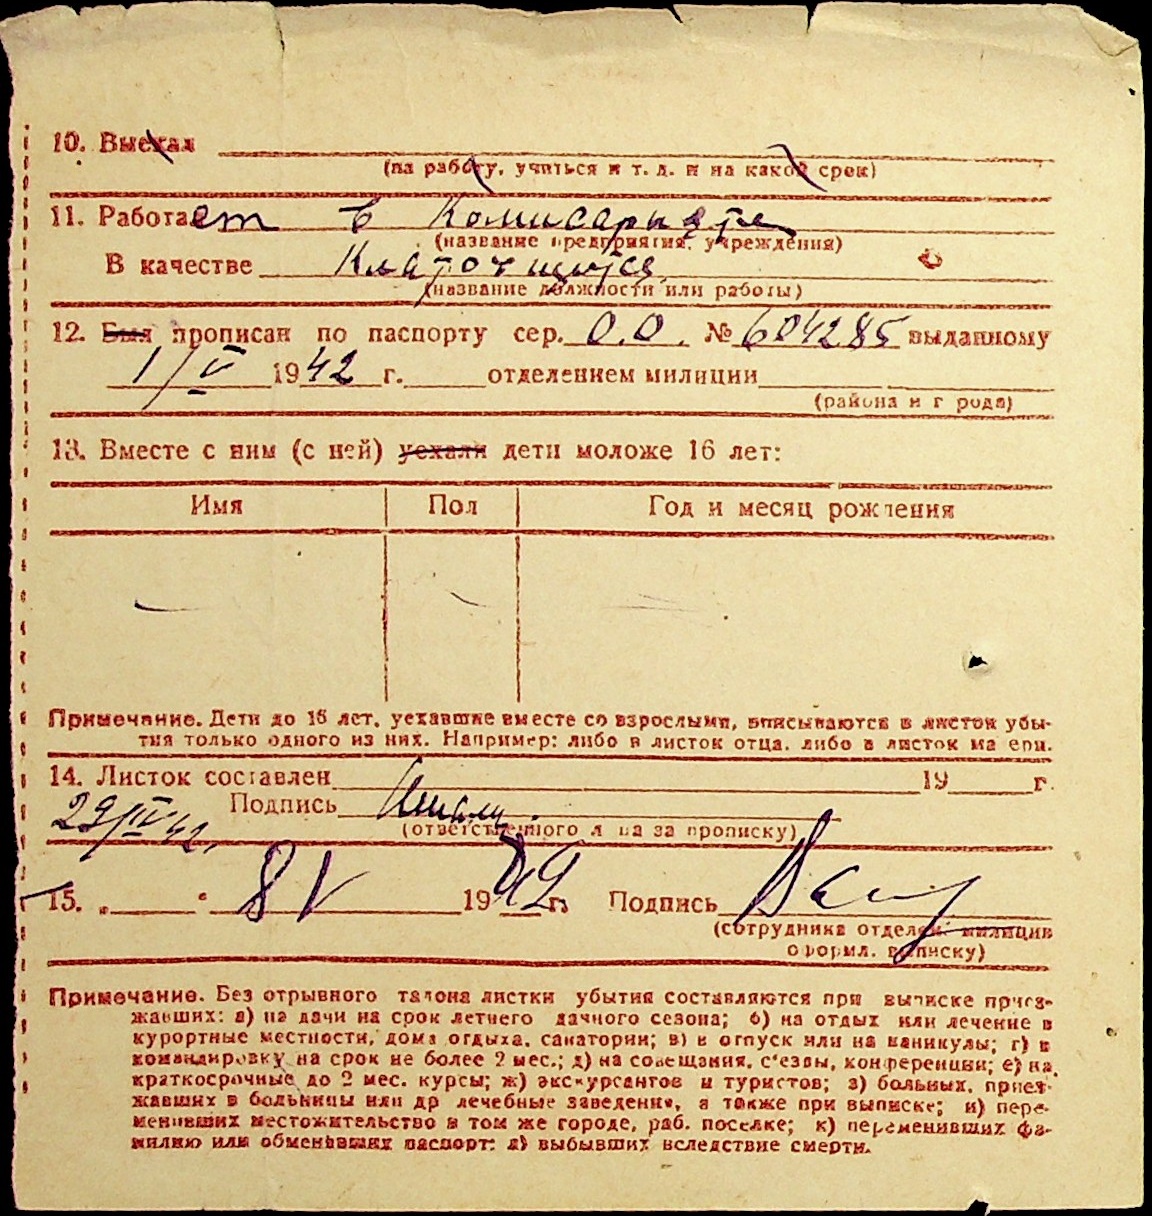 10. Выехал
(на работу, учиться и т. д. и на какой срок)
11. Работает в Комисарыате
(название предприятия, учреждения)
В качестве
(название должности или работы)
12. Был прописан по паспорту сер. О.О. № 604285 выданному
1/V 1942 г. отделением милиции
(района и города)
13. Вместе с ним (с ней) уехали дети моложе 16 лет:
Имя Пол Год и месяц рождения
— — —
Примечание. Дети до 16 лет, уехавшие вместе со взрослыми, вписываются в листок убы-
тия только одного из них. Например: либо в листок отца, либо в листок матери.
14. Листок составлен 19 г.
29/IV 42. Подпись
(ответственного лица за прописку)
15. „ “ 8 V 1942 г. Подпись
(сотрудника отделен. милиции
оформл. выписку)
Примечание. Без отрывного талона листки убытия составляются при выписке приез-
жавших: а) на дачи на срок летнего дачного сезона; б) на отдых или лечение в
курортные местности, дома отдыха, санатории; в) в отпуск или на каникулы; г) в
командировку на срок не более 2 мес.; д) на совещания, с'езды, конференции; е) на
краткосрочные до 2 мес. курсы; ж) экскурсантов и туристов; з) больных, приез-
жавших в больницы или др лечебные заведения, а также при выписке; и) пере-
менивших местожительство в том же городе, раб. поселке; к) переменивших фа-
милию или обменявших паспорт; л) выбывших вследствие смерти.